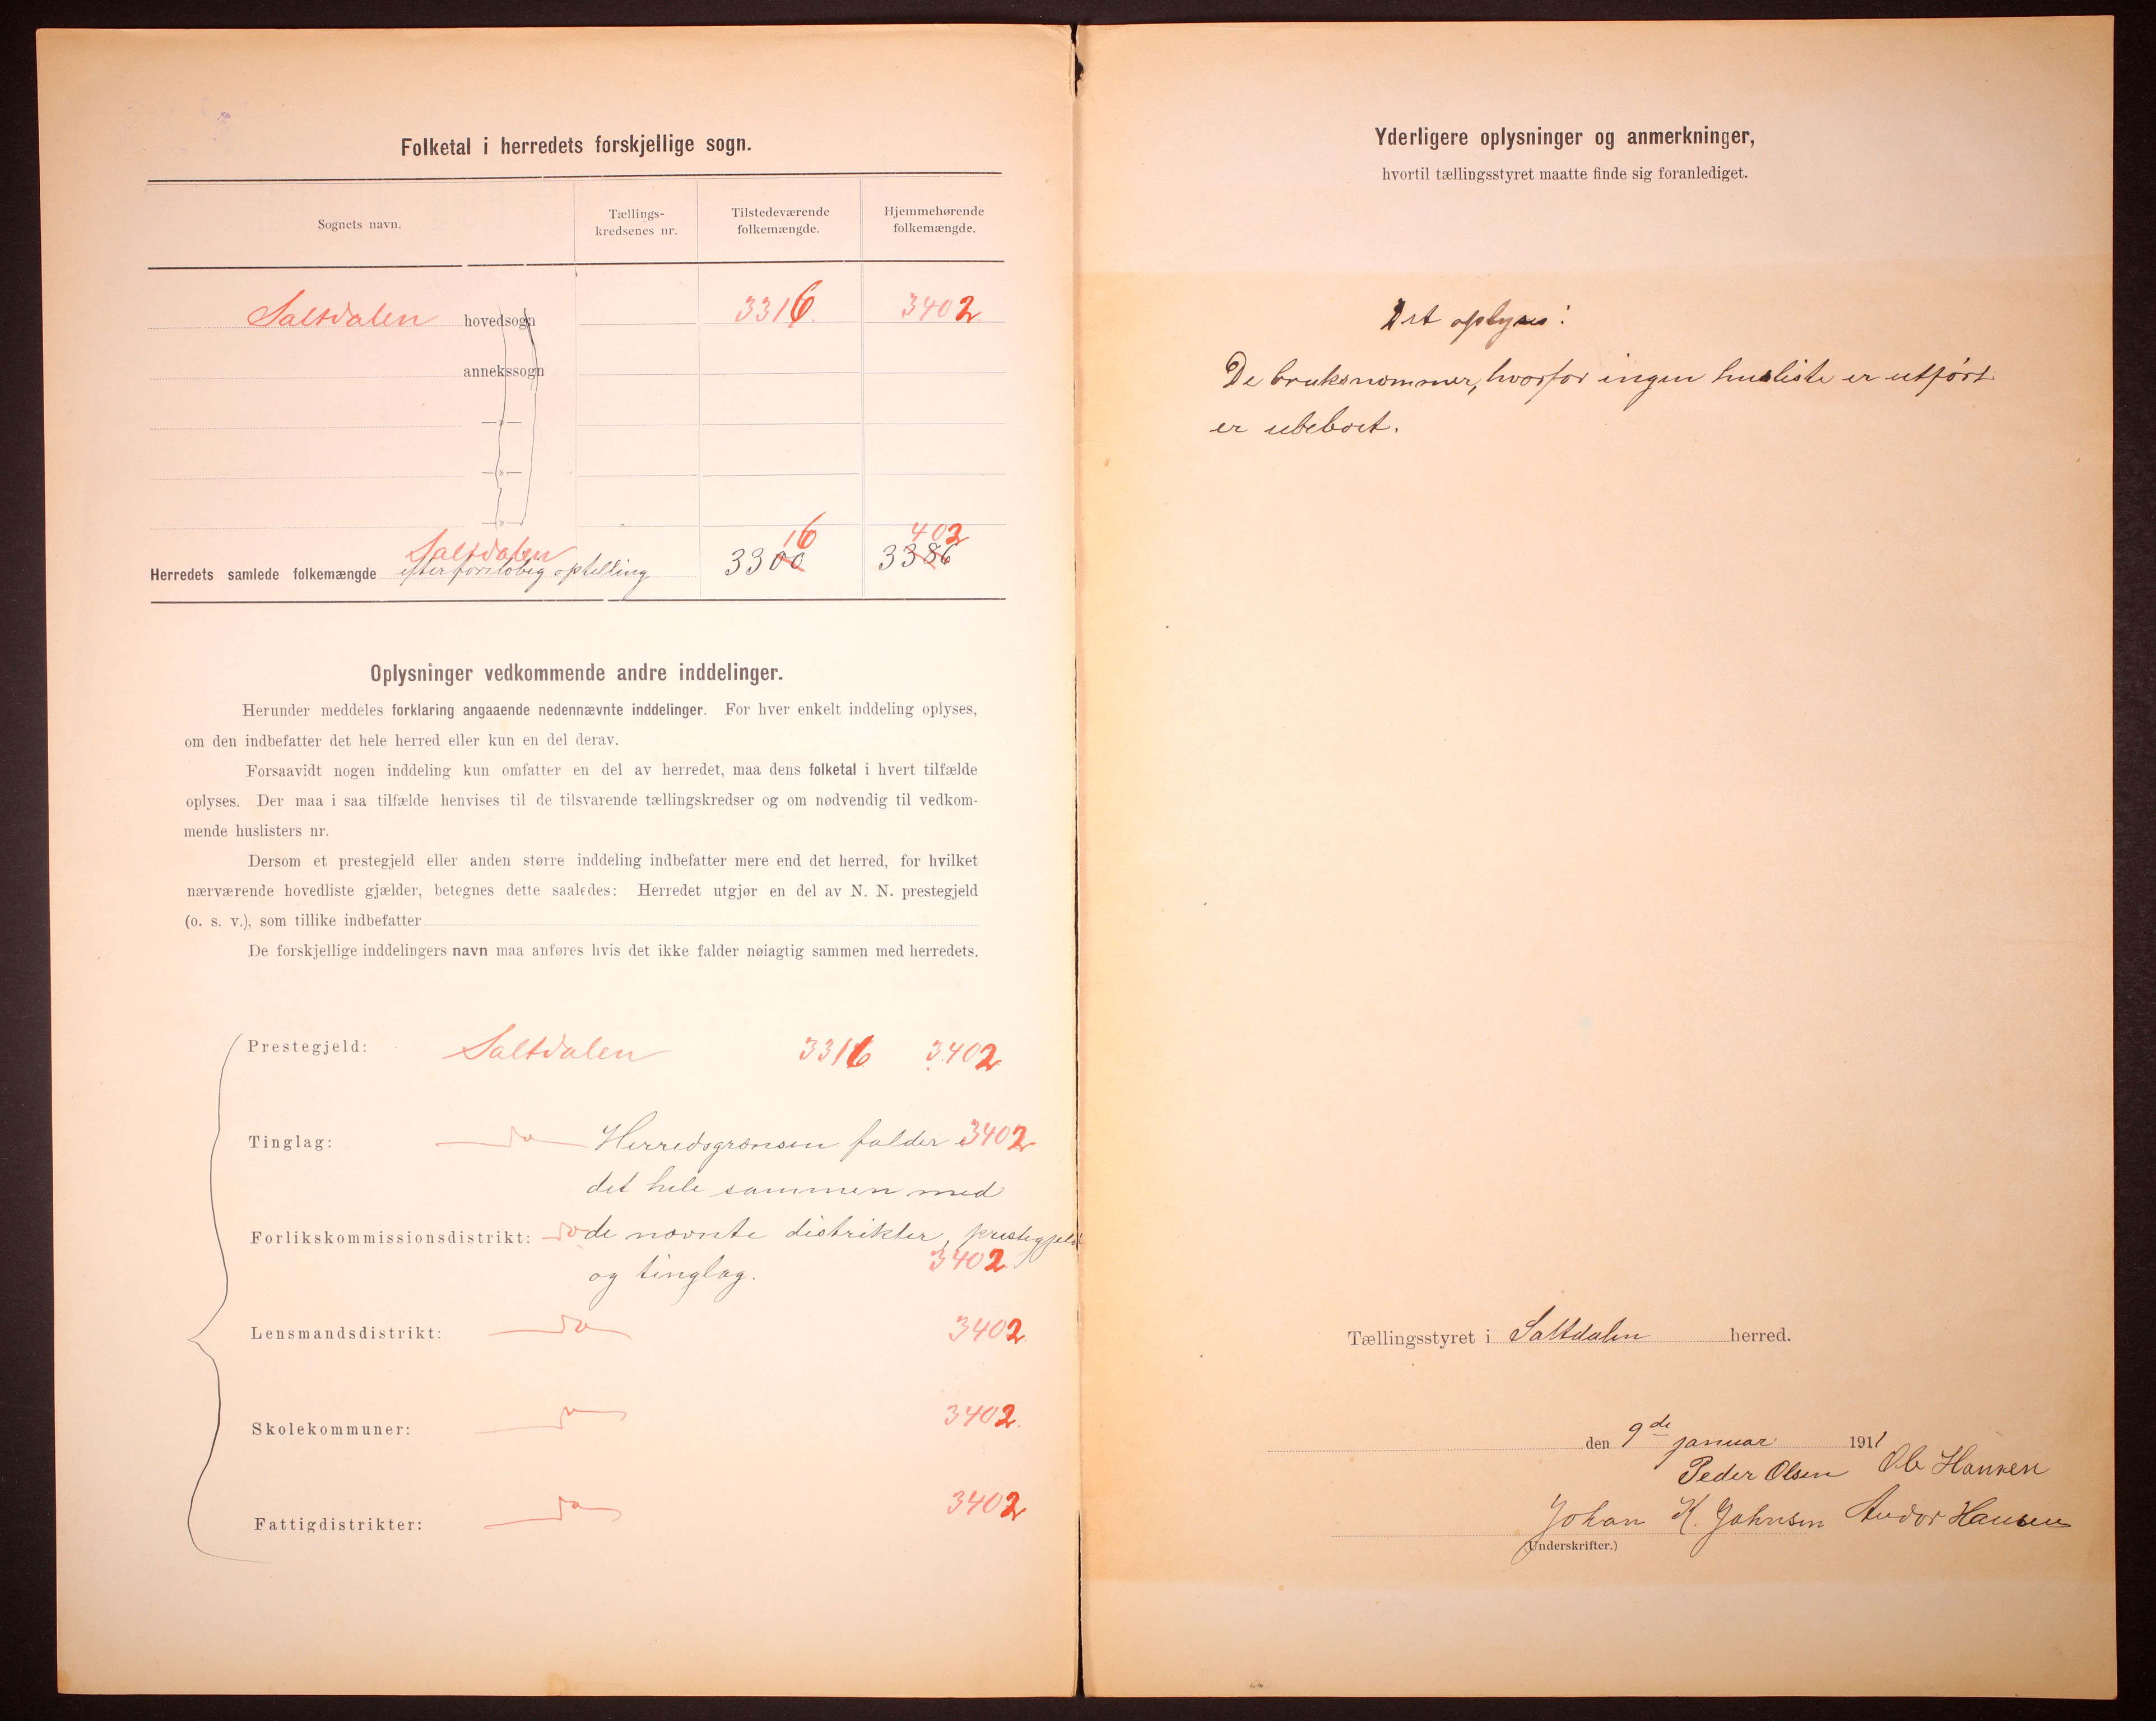 Folketal i herredets forskjellige sogn.
Sognets navn.
Tællings-
kredsenes nr.
Tilstedeværende
folkemængde.
Hjemmehørende
folkemængde.
Saltdalen hovedsogn 3316. 3402
annekssogn
—»—
—»—
—»—
16 402
Saltdalen
Herredets samlede folkemængde efter foreløbig optelling 3300 3386
Oplysninger vedkommende andre inddelinger.
Herunder meddeles forklaring angaaende nedennævnte inddelinger. For hver enkelt inddeling oplyses,
om den indbefatter det hele herred eller kun en del derav.
Forsaavidt nogen inddeling kun omfatter en del av herredet, maa dens folketal i hvert tilfælde
oplyses. Der maa i saa tilfælde henvises til de tilsvarende tællingskredser og om nødvendig til vedkom-
mende huslisters nr.
Dersom et prestegjeld eller anden større inddeling indbefatter mere end det herred, for hvilket
nærværende hovedliste gjælder, betegnes dette saaledes: Herredet utgjør en del av N. N. prestegjeld
(o. s. v.), som tillike indbefatter
De forskjellige inddelingers navn maa anføres hvis det ikke falder nøiagtig sammen med herredets.
Prestegjeld: Saltdalen 3316 3402
Tinglag: —do— Herredsgrænsen falder i 3402
det hele sammen med
Forlikskommissionsdistrikt: do de nævnte distrikter, prestegjeld
og tinglag. 3402
Lensmandsdistrikt: —do— 3402
Skolekommuner: —do— 3402.
Fattigdistrikter: —do— 3402
Yderligere oplysninger og anmerkninger,
hvortil tællingsstyret maatte finde sig foranlediget.
Det oplyses:
De bruksnummer, hvorfor ingen husliste er utført
er ubeboet.
Tællingsstyret i Saltdalen herred.
den 9de januar 1911
Peder Olsen Ole Hansen
Johan K. Johnsen Andor Hansen
(Underskrifter.)